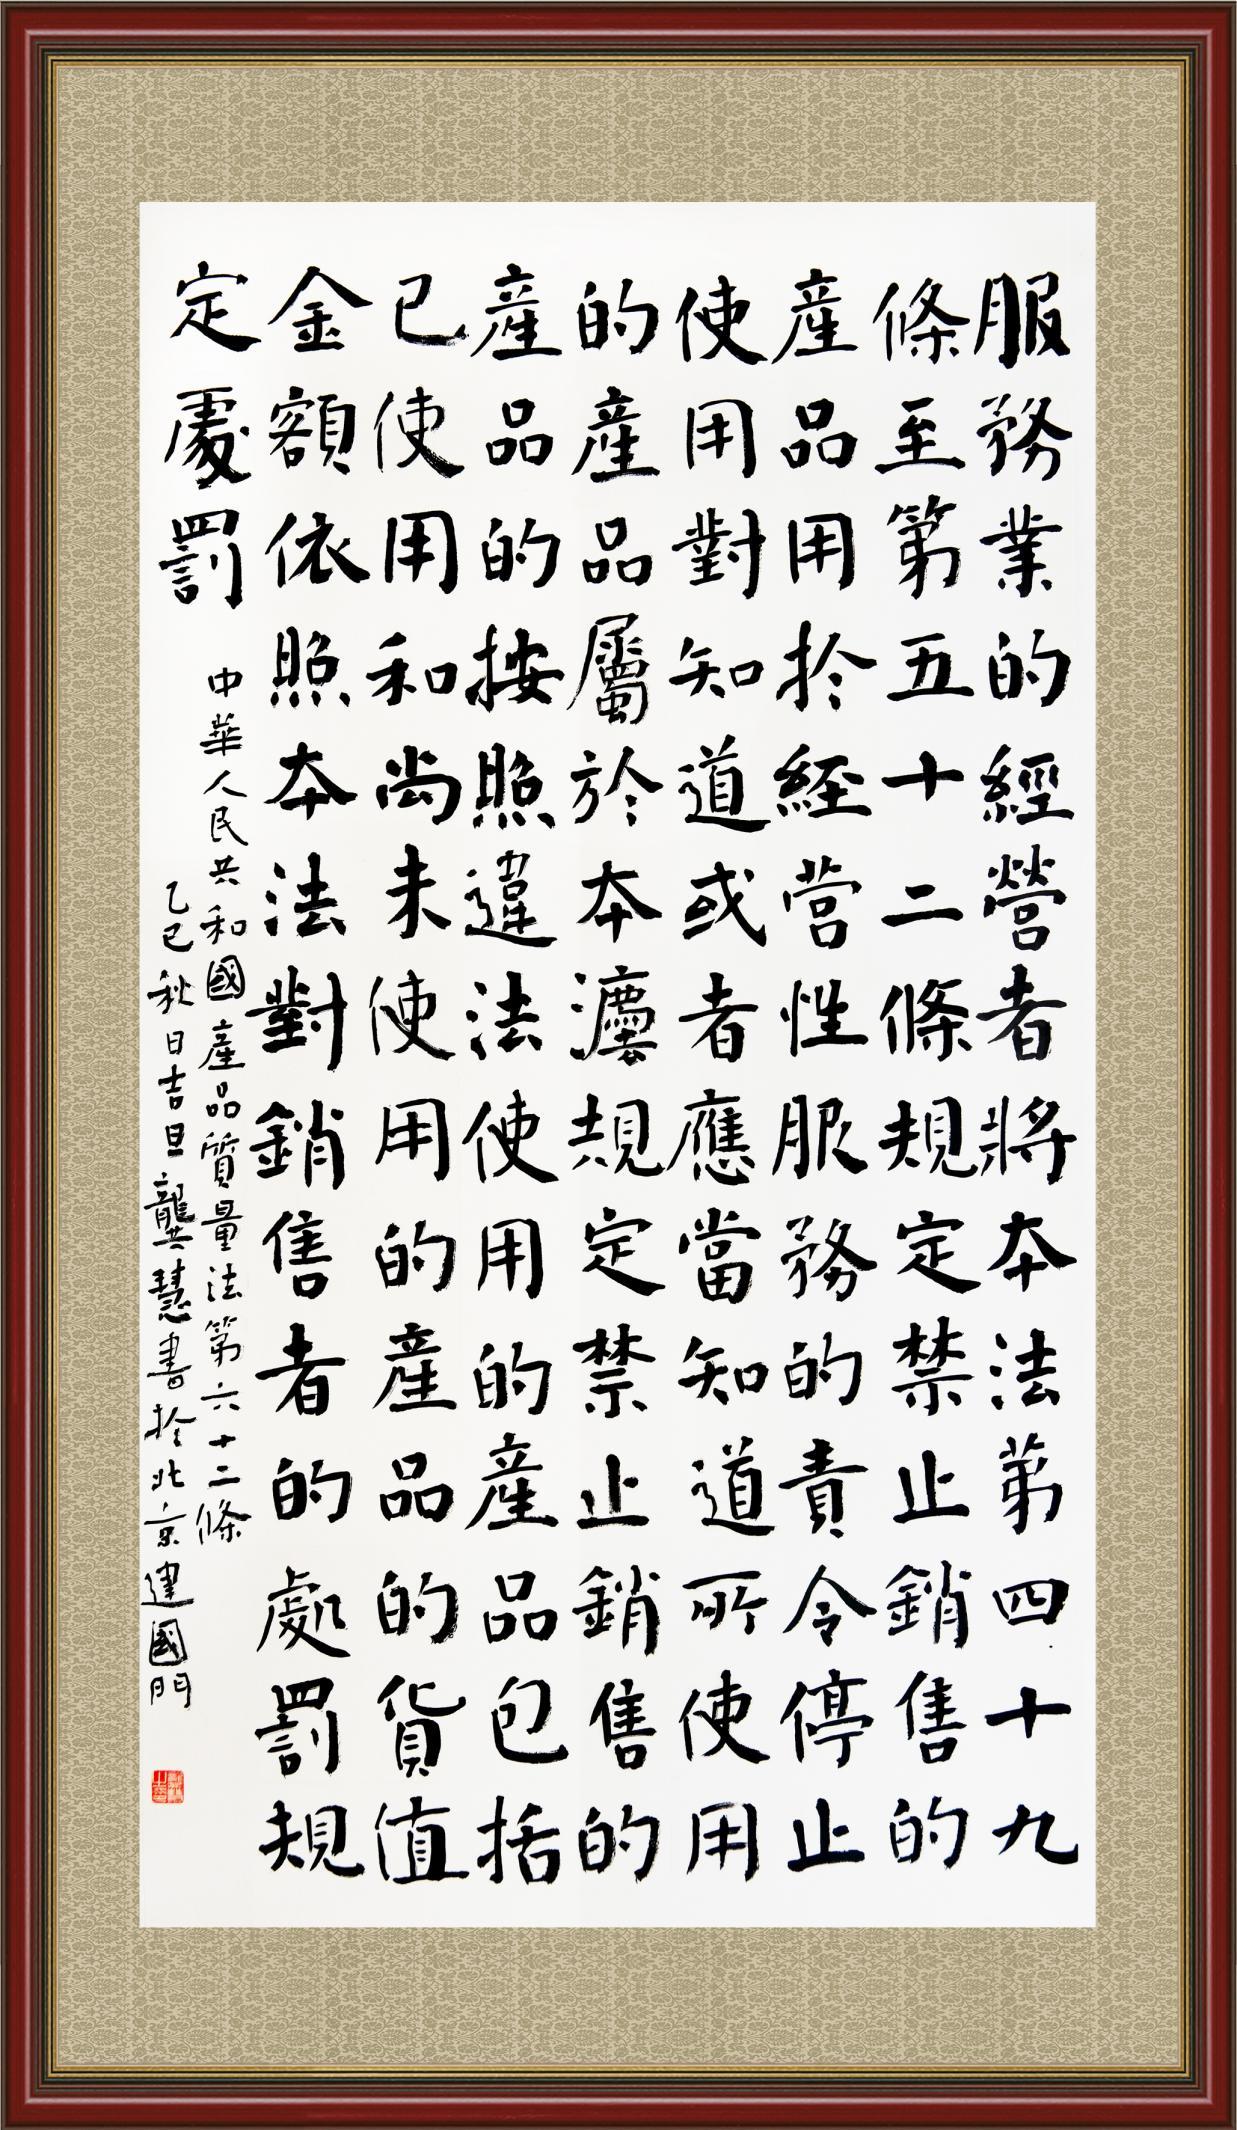 服務業的經營者將本法第四十九
條至第五十二條規定禁止銷售的
產品用於經营性服務的責令停止
使用對知道或者應當知道所使用
的產品屬於本灋規定禁止銷售的
產品的按照違法使用的產品包括
已使用和尚未使用的產品的貨值
金額依照本法對銷售者的處罰規
定處罰
中華人民共和國產品質量法第六十二條
乙巳秋日吉旦龔慧書於北京建國門